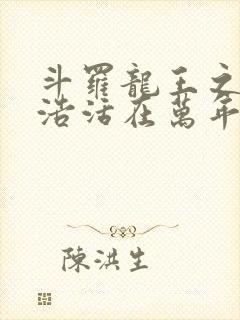 斗羅龍王之
浩活在萬年
陳洪生